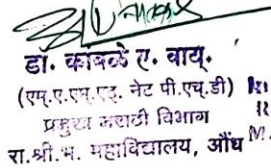 डॉ. कांबळे ए. वाय.
(एम्.ए.एम्.एड्. नेट पी.एच्.डी)
प्रमुख मराठी विभाग
रा.श्री.भ. महाविद्यालय, औंध